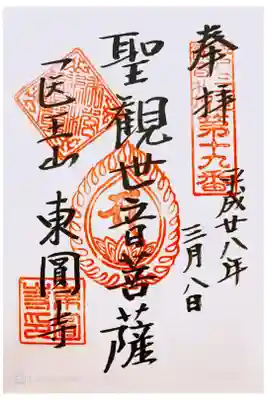 奉拝
第十九番
平成廿八年
三月八日
聖観世音菩薩
医王山
東圓寺